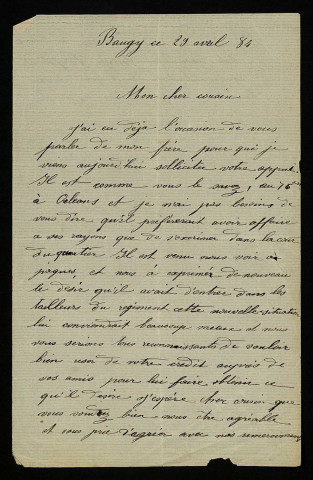 Baugy ce 29 avril 84
Mon cher cousin
J'ai eu déja l'occasion de vous
parler de mon frère pour que je
viens aujourd'hui solliciter votre appui.
Il est comme vous le savez, au 76
à Orléans et je n'ai pas besoin de
vous dire qu'il préfererait avoir affaire
a ses rayons que de s'escrimer dans la cour
du quartier Il est venu nous voir a
paques, et nous a exprimer de nouveau
le désir qu'il avait d'entrer dans les
tailleurs du régiment cette nouvelle situation
lui conviendrait beaucoup mieux et nous
vous serions tous reconnaissants de vouloir
bien user de votre crédit auprès de
vos amis pour lui faire obtenir ce
qu'il désire j'espère cher cousin que
vous voudrez bien nous être agréable
et vous prie d'agréer avec nos remerciements